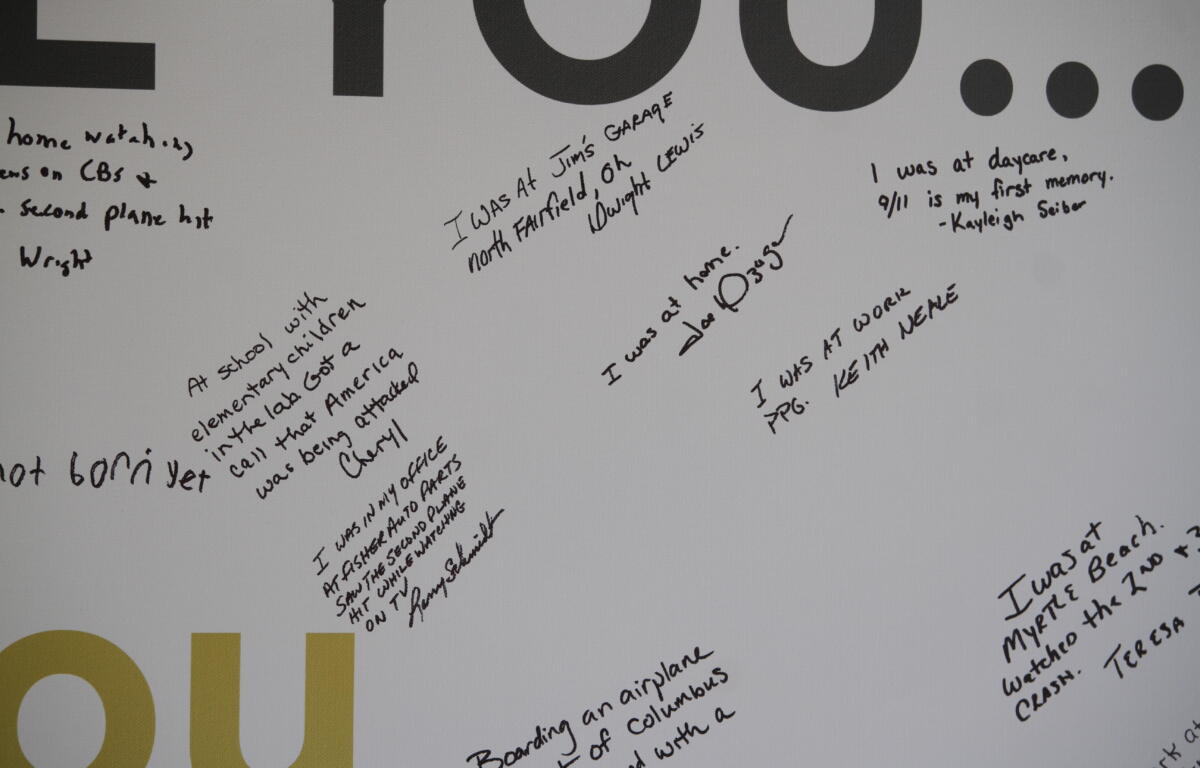 E YOU...
home watching
ews on CBS &
second plane hit
Wright
I WAS AT JIM'S GARAGE
north FAIRfield, Oh
Dwight LEWIS
I was at daycare,
9/11 is my first memory.
-Kayleigh Seiber
I was at home.
Joe
I WAS AT WORK
PPG. KEITH NEALE
At school with
elementary children
in the lab Got a
call that America
was being attacked
Cheryl
not born yet
I WAS IN MY OFFICE
AT FISHER AUTO PARTS
SAW THE SECOND PLANE
HIT WHILE WATCHING
ON TV
Schmidt
I was at
MYRTLE Beach.
Watched the 2ND + 3
CRASH. TERESA
ou
Boarding an airplane
of Columbus
with a